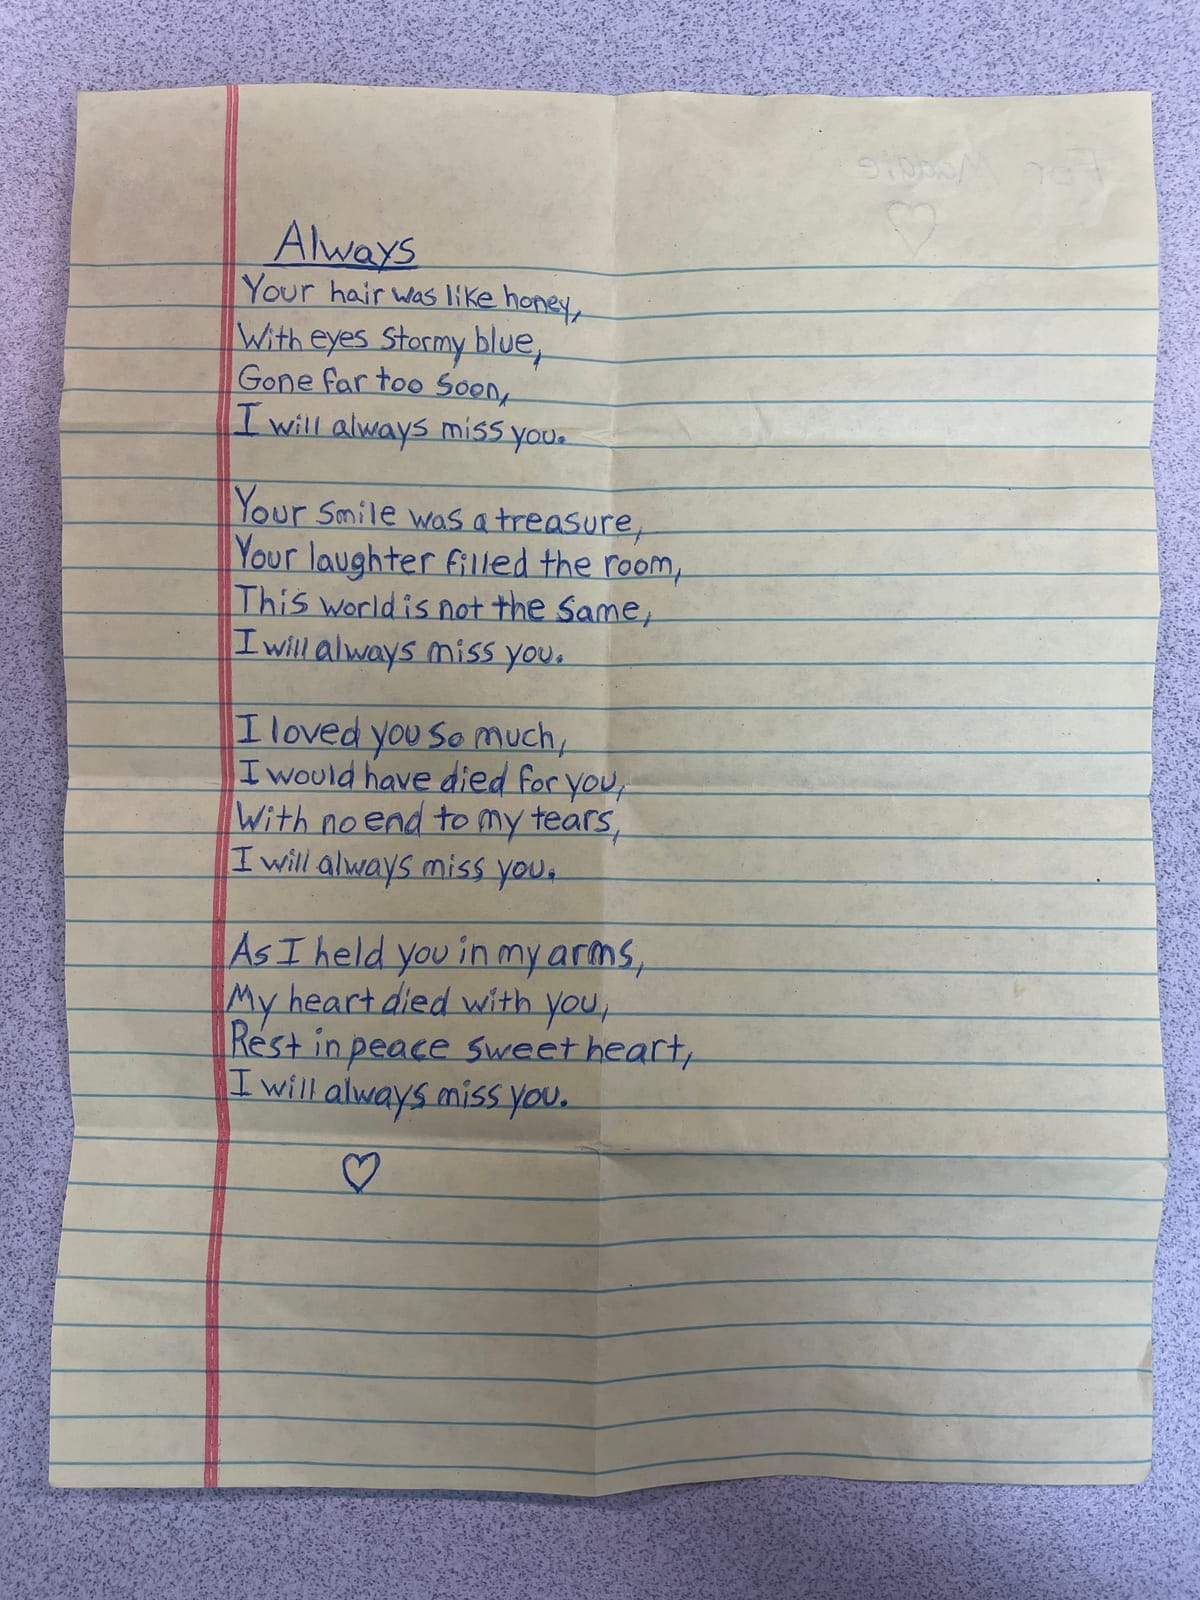 For Maggie
Always
Your hair was like honey,
With eyes stormy blue,
Gone far too soon,
I will always miss you.
Your smile was a treasure,
Your laughter filled the room,
This world is not the same,
I will always miss you.
I loved you so much,
I would have died for you,
With no end to my tears,
I will always miss you.
As I held you in my arms,
My heart died with you,
Rest in peace sweet heart,
I will always miss you.